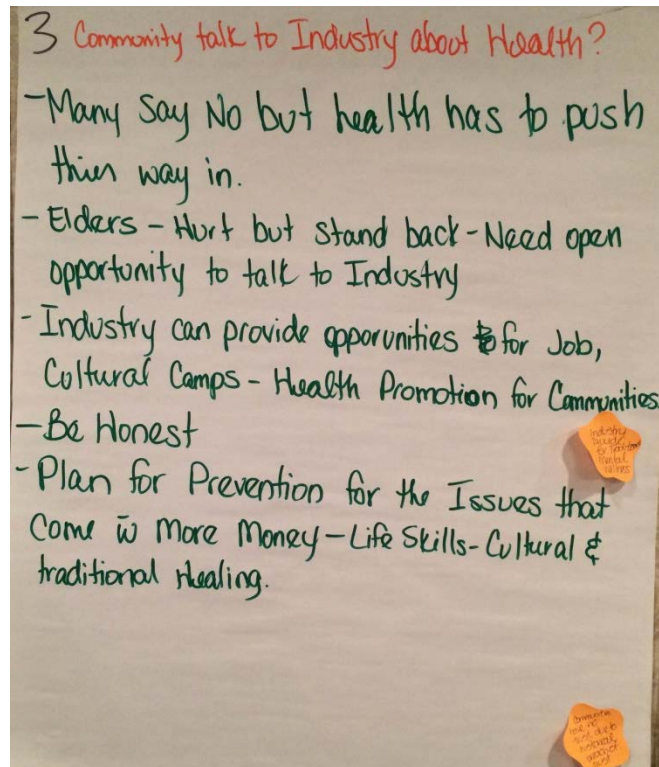 3 Community talk to Industry about Health?
- Many Say No but health has to push
thier way in.
- Elders - Hurt but Stand back - Need open
opportunity to talk to Industry
- Industry can provide opporunities for Job,
Cultural Camps - Health Promotion for Communities
- Be Honest
- Plan for Prevention for the Issues that
Come w̄ More Money - Life Skills - Cultural &
traditional Healing.
Industry
for
mental
Communities
have no
trust due to
historical